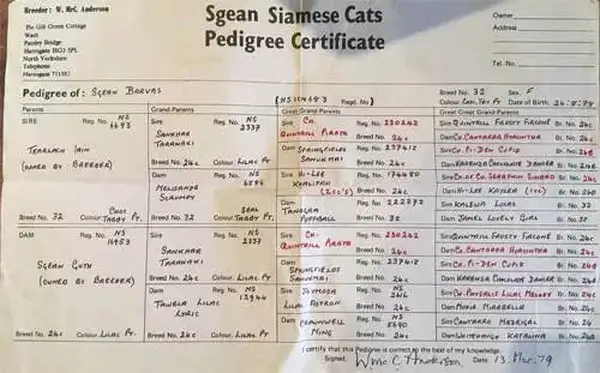 Breeder: W. McC. Anderson
Pie Gill Green Cottage
Wath
Pateley Bridge
Harrogate HG3 5PL
North Yorkshire
Telephone
Harrogate 711582
Sgean Siamese Cats
Pedigree Certificate
Owner
Address
Tel. No.
Pedigree of: SGEAN BARVAS
(NS 15468 3 Regd. No)
Breed No. 32 Sex. F
Colour. CHOC. TAY. PT Date of Birth. 24.8.78
Parents Grand-Parents Great Grand-Parents Great Great Grand-Parents
SIRE Reg. No. NS 6693
TEARLACH IAIN
(OWNED BY BREEDER)
Breed No. 32 Colour. CHOC TABBY PT.
Sire Reg. No. NS 2337
SANKHAR TARANAKI
Breed No. 24c Colour. LILAC PT
Dam Reg. No. NS 6594
MELISANDE
Breed No. 32 Colour. SEAL TABBY PT.
Sire CH. Reg. No. 230242
QUINTRILL PIRATA Breed No. 24c
Dam SPRINGFIELDS Reg. No. 237412
SANUKMAI Breed No. 24c
Sire HI-LEE Reg. No. 174480
KHALIFAH Breed No. 24c
Dam Reg. No. 222272
TANAGRA PUFFBALL Breed No. 32
Sire QUINTRILL FROSTY FIRCONE Br. No. 24c
Dam CH. CANTARRA HYACINTHA Br. No. 24c
Sire CH. PI-DEN CUPID Br. No. 24B
Dam KARENZA CHOCOLATE DAMER Br. No. 24B
Dam HI-LEE KAYLEA
Sire KALEWA LUCAS Br. No. 32
Dam JAMEL LOVELY GIRL
DAM Reg. No. NS 16953
SGEAN GUTH
(OWNED BY BREEDER)
Breed No. 24c Colour. LILAC PT
Sire Reg. No. NS 2337
SANKHAR TARANAKI
Breed No. 24c Colour. LILAC PT.
Dam Reg. No. NS 12944
TAURLA LILAC LYRIC
Breed No. 24c Colour. LILAC PT.
Sire CH. Reg. No. 230242
QUINTRILL PIRATA Breed No. 24c
Dam Reg. No. 237412
SPRINGFIELDS SANUKMAI Breed No. 24c
Sire JOYMOSA Reg. No. NS
LILAC Breed No. 24c
Dam Reg. No. NS 5690
MING Breed No. 24c
Sire QUINTRILL FROSTY FIRCONE Br. No. 24c
Dam CH. CANTARRA HYACINTHA Br. No. 24c
Sire CH. PI-DEN CUPID Br. No. 24B
Dam KARENZA CHOCOLATE DAMER Br. No. 24B
Sire CH. PHYSALIS LILAC MELODY Br. No. 24c
Dam MOVIA MIRABELLA Br. No.
Sire CANTARRA MADRIGAL Br. No. 24
Dam WHITEHAUGH KATALINA Br. No.
I certify that this Pedigree is correct to the best of my knowledge.
Signed. Wm. C. Anderson Date. 13. Mar. 79